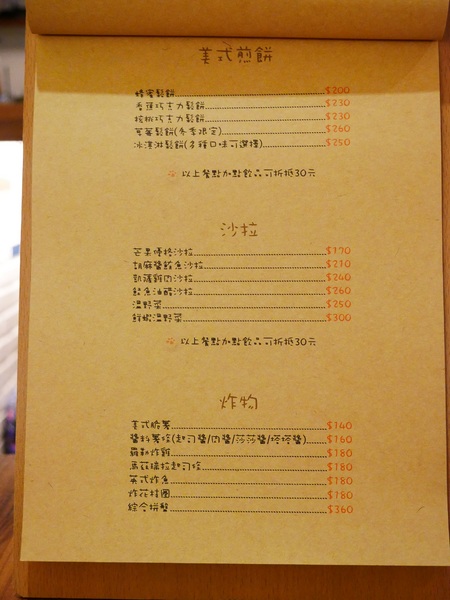 美式煎餅
蜂蜜鬆餅 $200
香蕉巧克力鬆餅 $230
核桃巧克力鬆餅 $230
草莓鬆餅(冬季限定) $260
冰淇淋鬆餅(多種口味可選擇) $250
以上餐點加點飲品可折抵30元
沙拉
芒果優格沙拉 $190
胡麻醬鮪魚沙拉 $210
凱薩雞肉沙拉 $240
鮭魚油醋沙拉 $260
溫野菜 $250
鮮蝦溫野菜 $300
以上餐點加點飲品可折抵30元
炸物
美式脆薯 $140
醬料薯條(起司醬/肉醬/莎莎醬/塔塔醬) $160
羅勒炸雞 $180
馬茲瑞拉起司條 $180
英式炸魚 $180
炸花枝圈 $180
綜合拼盤 $360